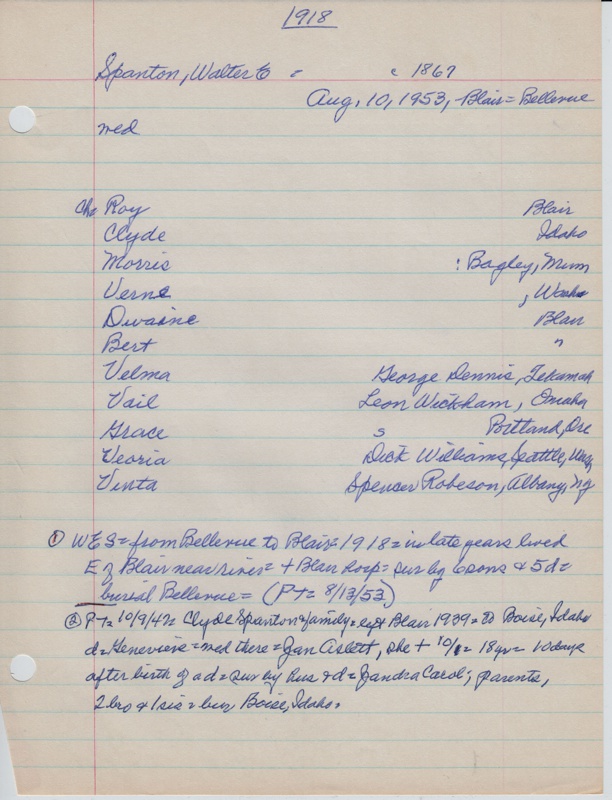 1918
Spanton, Walter E = c 1867
Aug, 10, 1953, Blair = Bellevue
med
Chs Roy Blair
Clyde Idaho
Morris : Bagley, Minn
Verne , Wash
Dwaine Blair
Bert "
Velma George Dennis, Tekamah
Vail Leon Wickham, Omaha
Grace s Portland, Ore
Veoria Dick Williams, Seattle, Wash
Vinta Spencer Robeson, Albany, NY
① WES = from Bellevue to Blair = 1918 = in late years lived
E of Blair near river = + Blair Hosp = sur by 6 sons & 5 d =
burial Bellevue = (PT = 8/13/53)
② PT = 10/9/42 = Clyde Spanton & family = left Blair 1939 = to Boise, Idaho
d = Genevieve = med there = Jan Aslett, she + 10/1 = 18 yr = 10 days
after birth of a d = sur by hus & d = Jandra Carol; parents,
2 bro & 1 sis = bur Boise, Idaho =